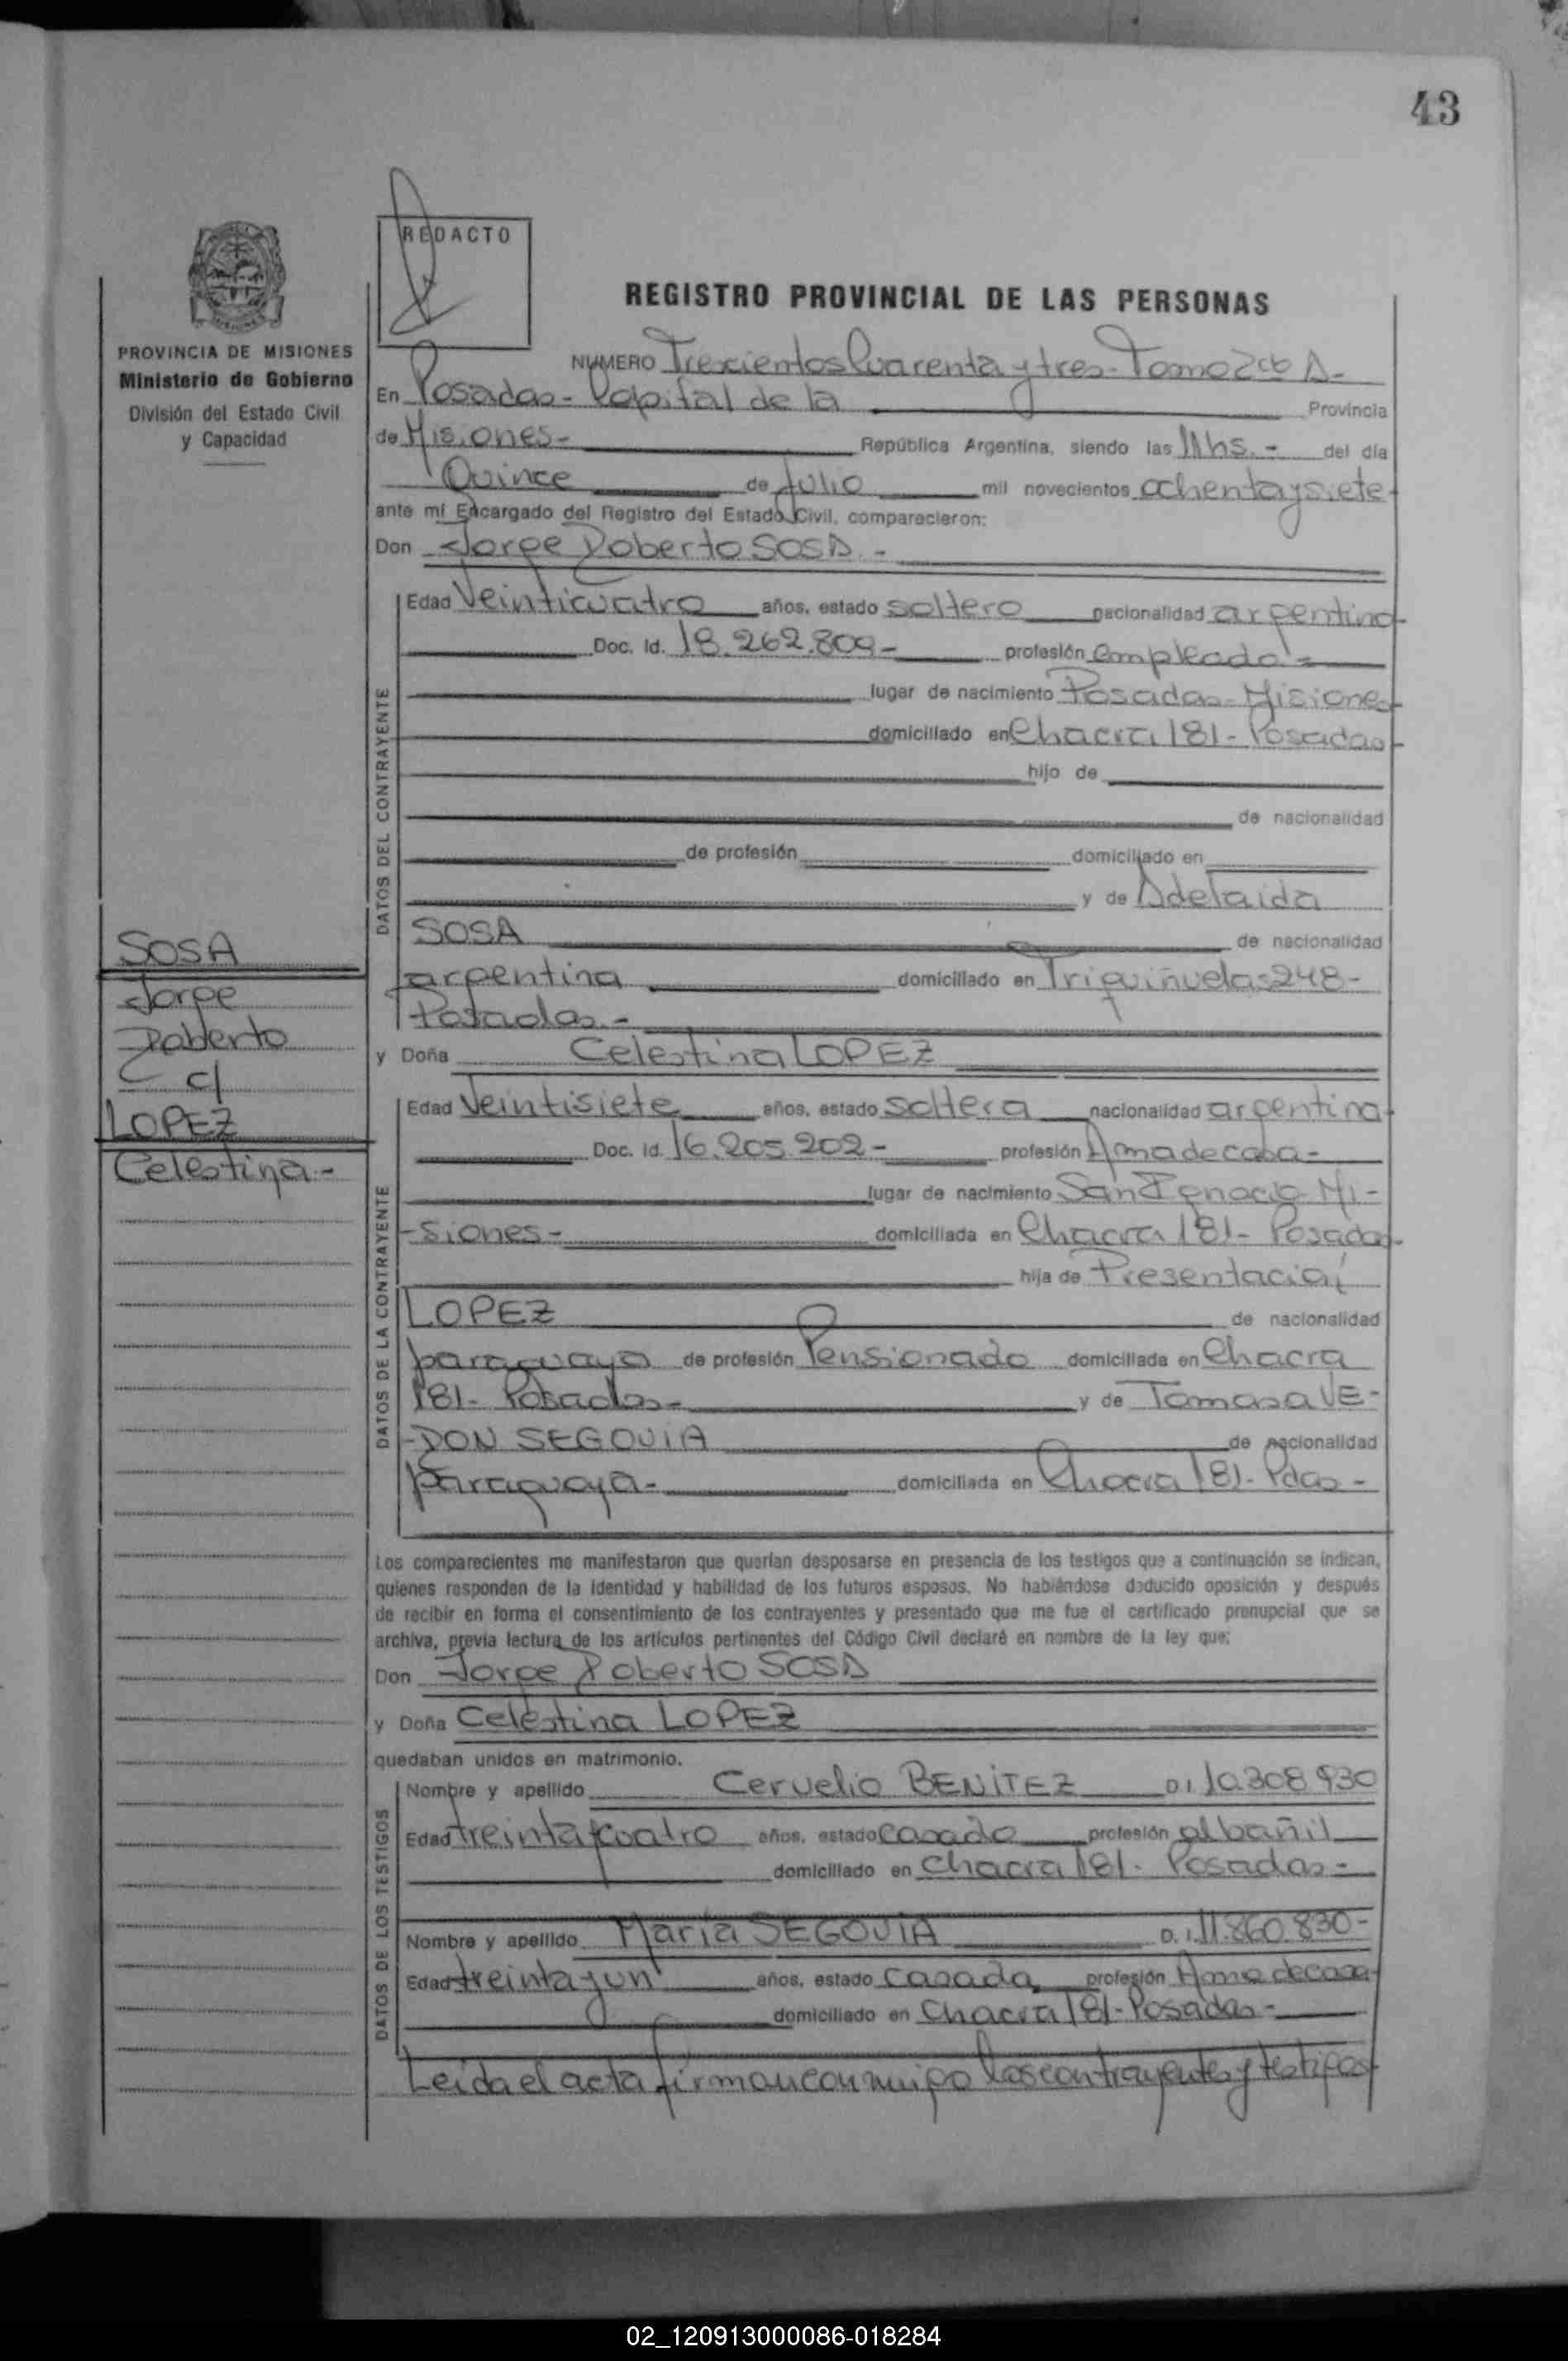 43
REDACTO
REGISTRO PROVINCIAL DE LAS PERSONAS
PROVINCIA DE MISIONES
Ministerio de Gobierno
División del Estado Civil
y Capacidad
NUMERO Trescientos Cuarenta y tres - Tomo 2do A-
En Posadas - Capital de la Provincia
de Misiones - República Argentina, siendo las 11hs. - del día
Quince de Julio mil novecientos ochenta y siete
ante mí Encargado del Registro del Estado Civil, comparecieron:
Don Jorge Roberto SOSA. -
DATOS DEL CONTRAYENTE
Edad Veinticuatro años, estado soltero nacionalidad argentino
Doc. Id. 18.262.809- profesión empleado -
lugar de nacimiento Posadas - Misiones
domiciliado en Chacra 181 - Posadas
hijo de
de nacionalidad
de profesión domiciliado en
y de Adelaida
SOSA de nacionalidad
argentina domiciliado en Triquiñuelas 248 -
Posadas. -
y Doña Celestina LOPEZ
SOSA
Jorge
Roberto
c/
LOPEZ
Celestina -
DATOS DE LA CONTRAYENTE
Edad Veintisiete años, estado soltera nacionalidad argentina
Doc. Id. 16.205.202 - profesión Ama de casa -
lugar de nacimiento San Ignacio Mi-
-siones - domiciliada en Chacra 181 - Posadas
hija de Presentación
LOPEZ de nacionalidad
paraguayo de profesión Pensionado domiciliada en Chacra
181 - Posadas - y de Tomasa VE-
-DON SEGOVIA de nacionalidad
paraguaya - domiciliada en Chacra 181 - Pdas -
Los comparecientes me manifestaron que querían desposarse en presencia de los testigos que a continuación se indican,
quienes responden de la identidad y habilidad de los futuros esposos. No habiéndose deducido oposición y después
de recibir en forma el consentimiento de los contrayentes y presentado que me fue el certificado prenupcial que se
archiva, previa lectura de los artículos pertinentes del Código Civil declaré en nombre de la ley que:
Don Jorge Roberto SOSA
y Doña Celestina LOPEZ
quedaban unidos en matrimonio.
DATOS DE LOS TESTIGOS
Nombre y apellido Cervelio BENITEZ D.I. 10.308.930
Edad treinta y cuatro años, estado casado profesión albañil
domiciliado en Chacra 181 - Posadas -
Nombre y apellido María SEGOVIA D.I. 11.860.830 -
Edad treinta y un años, estado casada profesión Ama de casa
domiciliado en Chacra 181 - Posadas -
Leída el acta firman conmigo los contrayentes y testigos
02_120913000086-018284